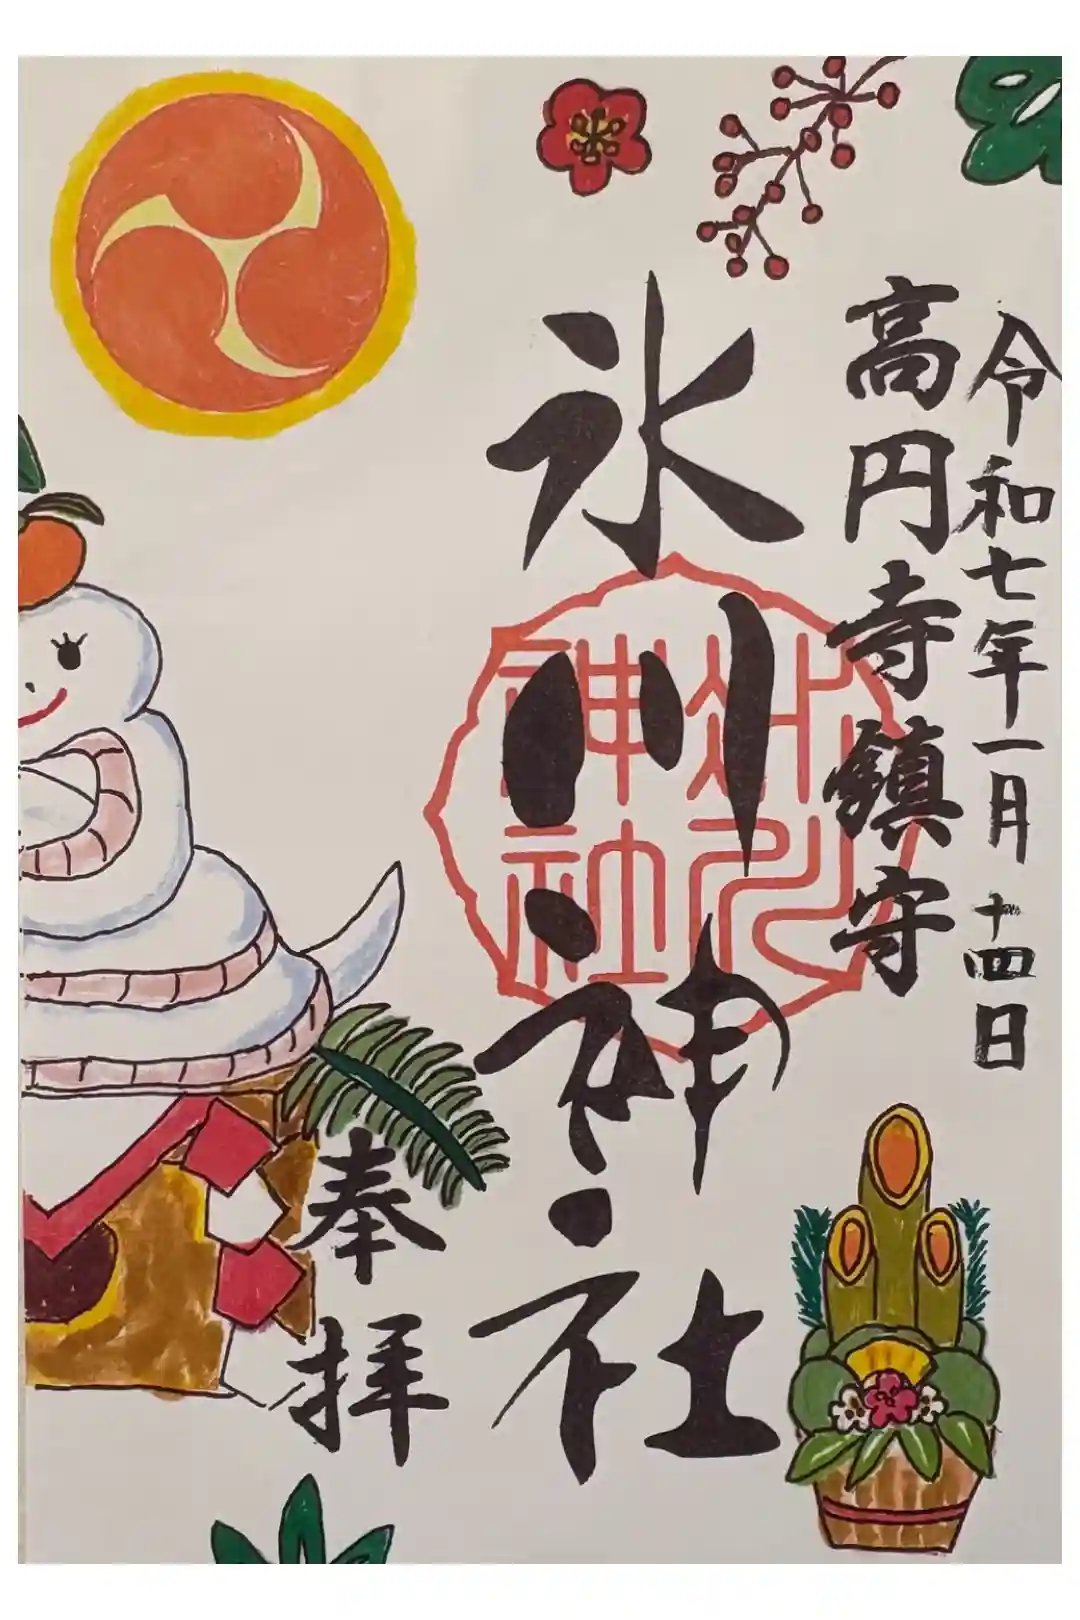 令和七年一月十四日
高円寺鎮守
氷川神社
氷川神社
奉拝